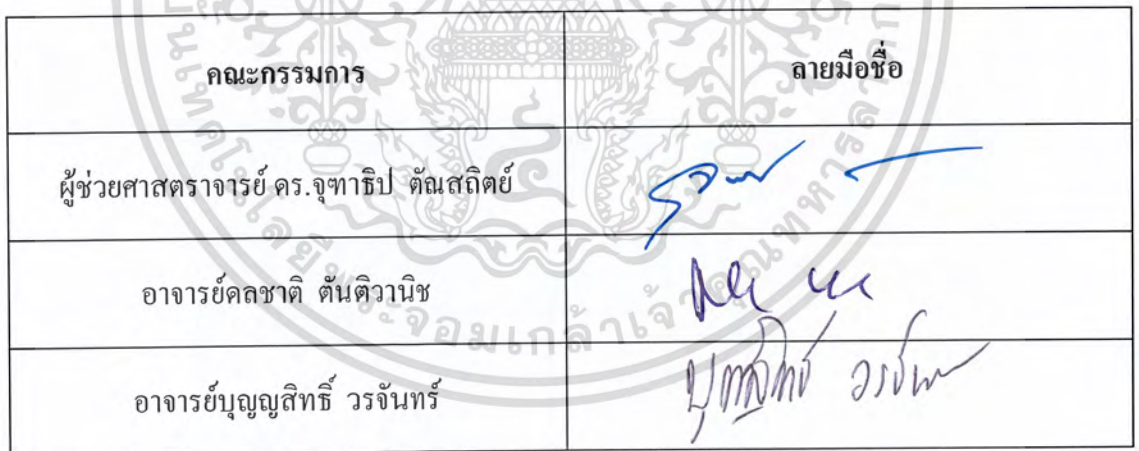 คณะกรรมการ ลายมือชื่อ
ผู้ช่วยศาสตราจารย์ ดร.จุฑาธิป ตัณสถิตย์
อาจารย์ดลชาติ ตันติวานิช
อาจารย์บุญญสิทธิ์ วรจันทร์ บุญญสิทธิ์ วรจันทร์
พระจอมเกล้าเจ้าคุณทหารลาดก